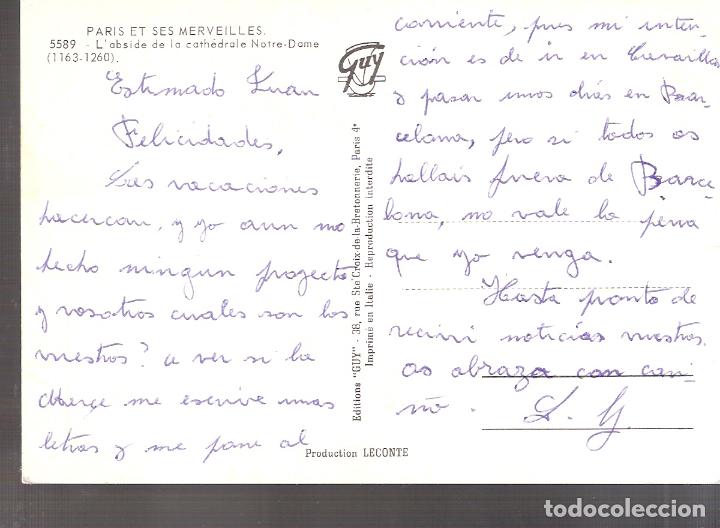 PARIS ET SES MERVEILLES.
5589 - L'abside de la cathédrale Notre-Dame
(1163-1260).
Estimado Juan
Felicidades,
Las vacaciones
hacercan, y yo aun no
hecho ningun projecto
y vosotros cuales son los
vuestros? a ver si la
me escrive unas
letras y me pone al
corriente, pues mi inten-
ción es de ir en Crevaillas
y pasar unos dias en Bar-
celona, pero si todos os
hallais fuera de Barce-
lona, no vale la pena
que yo venga.
Hasta pronto de
recivir noticias vuestras.
os abraza con cari-
ño.
Guy
Editions "GUY" - 38, rue Ste Croix-de-la-Bretonnerie, Paris 4e
Imprimé en Italie - Reproduction interdite
Production LECONTE
todocoleccion.net